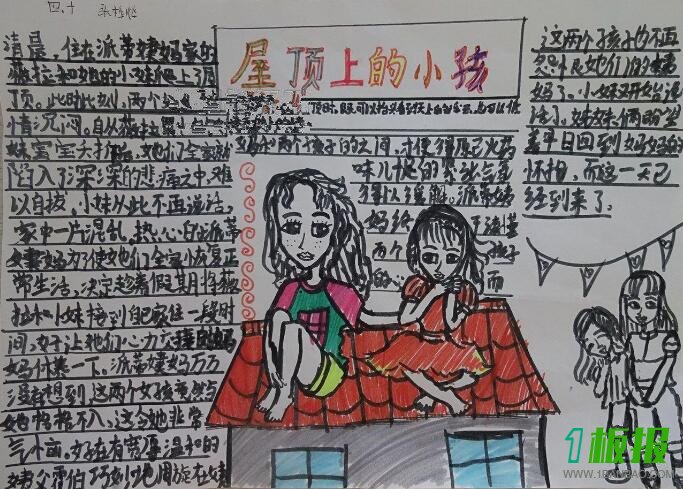 四、十
屋顶上的小孩
清晨，住在派蒂姨妈家的
薇拉和她的小妹爬上了屋
顶。此时此刻，两个
情沉闷。自从薇拉
妹宝宝夭折后，她们全家就
陷入了深深的悲痛之中，难
以自拔，小妹从此不再说话，
家中一片混乱，热心的派蒂
姨妈为了使她们全家恢复正
常生活，决定趁着假期将薇
拉和小妹接到自己家住一段时
间，好让她们心力交
妈休养一下。派蒂姨妈万万
没有想到，这两个女孩竟然与
她格格不入，这令她非常
气恼。好在有宽厚温和的
姨父霍伯巧妙地周旋在姨
妈和两个孩子的之间，才使得原已火药
味儿十足的紧张气氛
得以缓解。派蒂姨
妈终于读懂
两个孩子
的心，而
这两个孩子也不再
怨恨她们的姨
妈了。小妹又开始说
话了，姐妹俩盼望
着早日回到妈妈的
怀抱，而这一天已
经到来了。
1板报
WWW.1BANBAO.COM